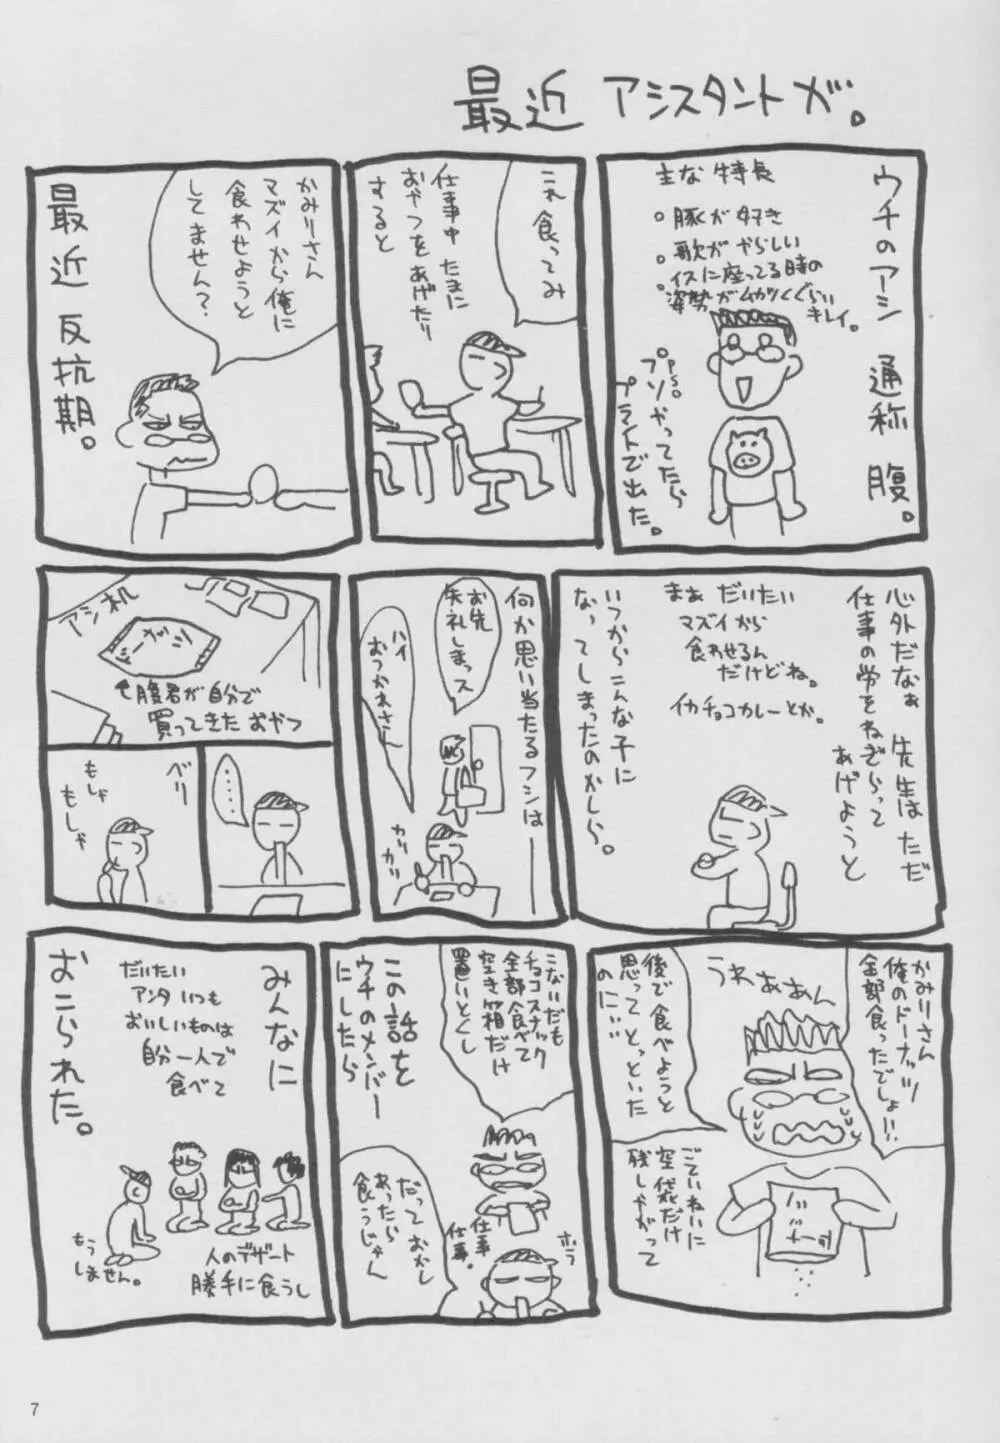 最近 アシスタントが。
ウチのアシ 通称 腹。
主な特長
。豚が好き
。歌がやらしい
。イスに座ってる時の
姿勢がムカツくぐらい
キレイ。
P.S.
プソやってたら
プラントで出た。
これ 食ってみ
仕事中 たまに
おやつをあげたり
すると
かみりさん
マズイから俺に
食わせようと
してません?
最近 反抗期。
心外だなぁ 先生はただ
仕事の労をねぎらって
あげようと
まぁ だいたい
マズイから
食わせるん
だけどね。
イカチョコカレーとか。
いつからこんな子に
なってしまったのかしら。
何か思い当たるフシは
お先
失礼しまっス
ハイ
おつかれさん
カリ
カリ
アシ机
腹君が自分で
買ってきた おやつ
・・・・
ベリ
もしゃ
もしゃ
かみりさん
俺のドーナッツ
全部食ったでしょ!!
うわぁぁん
後で食べようと
思って とっといた
のに…
ごていねいに
空袋だけ
残しやがって
こないだも
チョコスナック
全部食べて
空き箱だけ
置いとくし
ホラ
仕事
仕事。
だって おかし
あったら
食うじゃん
この話を
ウチのメンバー
にしたら
みんなに
だいたい
アンタ いつも
おいしいものは
自分一人で
食べて
人のデザート
勝手に食うし
もう
しません。
おこられた。
7